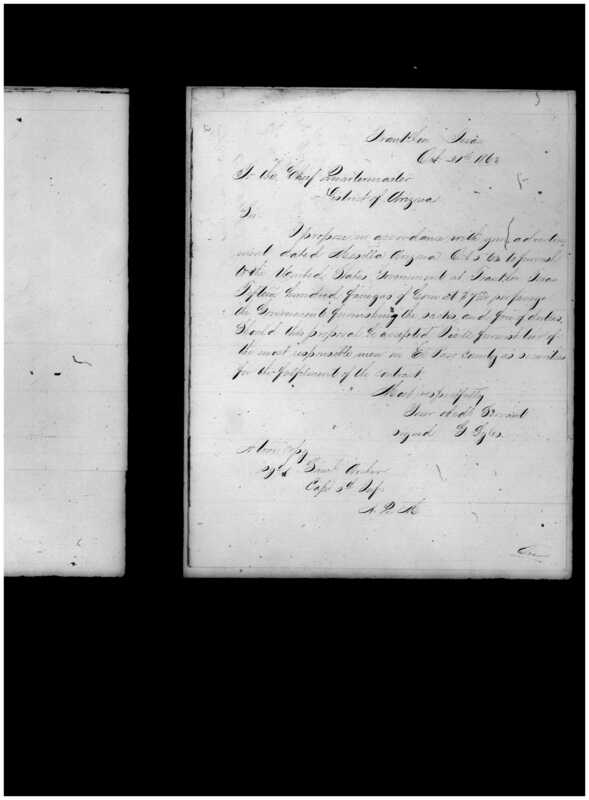 Franklin Texas
Oct 21st 1862
To the Chief Quartermaster
District of Arizona
Sir
I propose in accordance with your advertise
ment dated Mesilla Arizona Oct 5 62 to furnish
to the United States Government at Franklin Texas
Fifteen hundred fanegas of Corn at per fanega
the Government furnishing the sacks and free of duties
Should this proposal be accepted I will furnish two of
the most responsible men in El Paso County as securities
for the fulfilment of the contract
Most respectfully
Your obdt Servant
signed
A true copy
sgd Archer
Capt 5th Inf